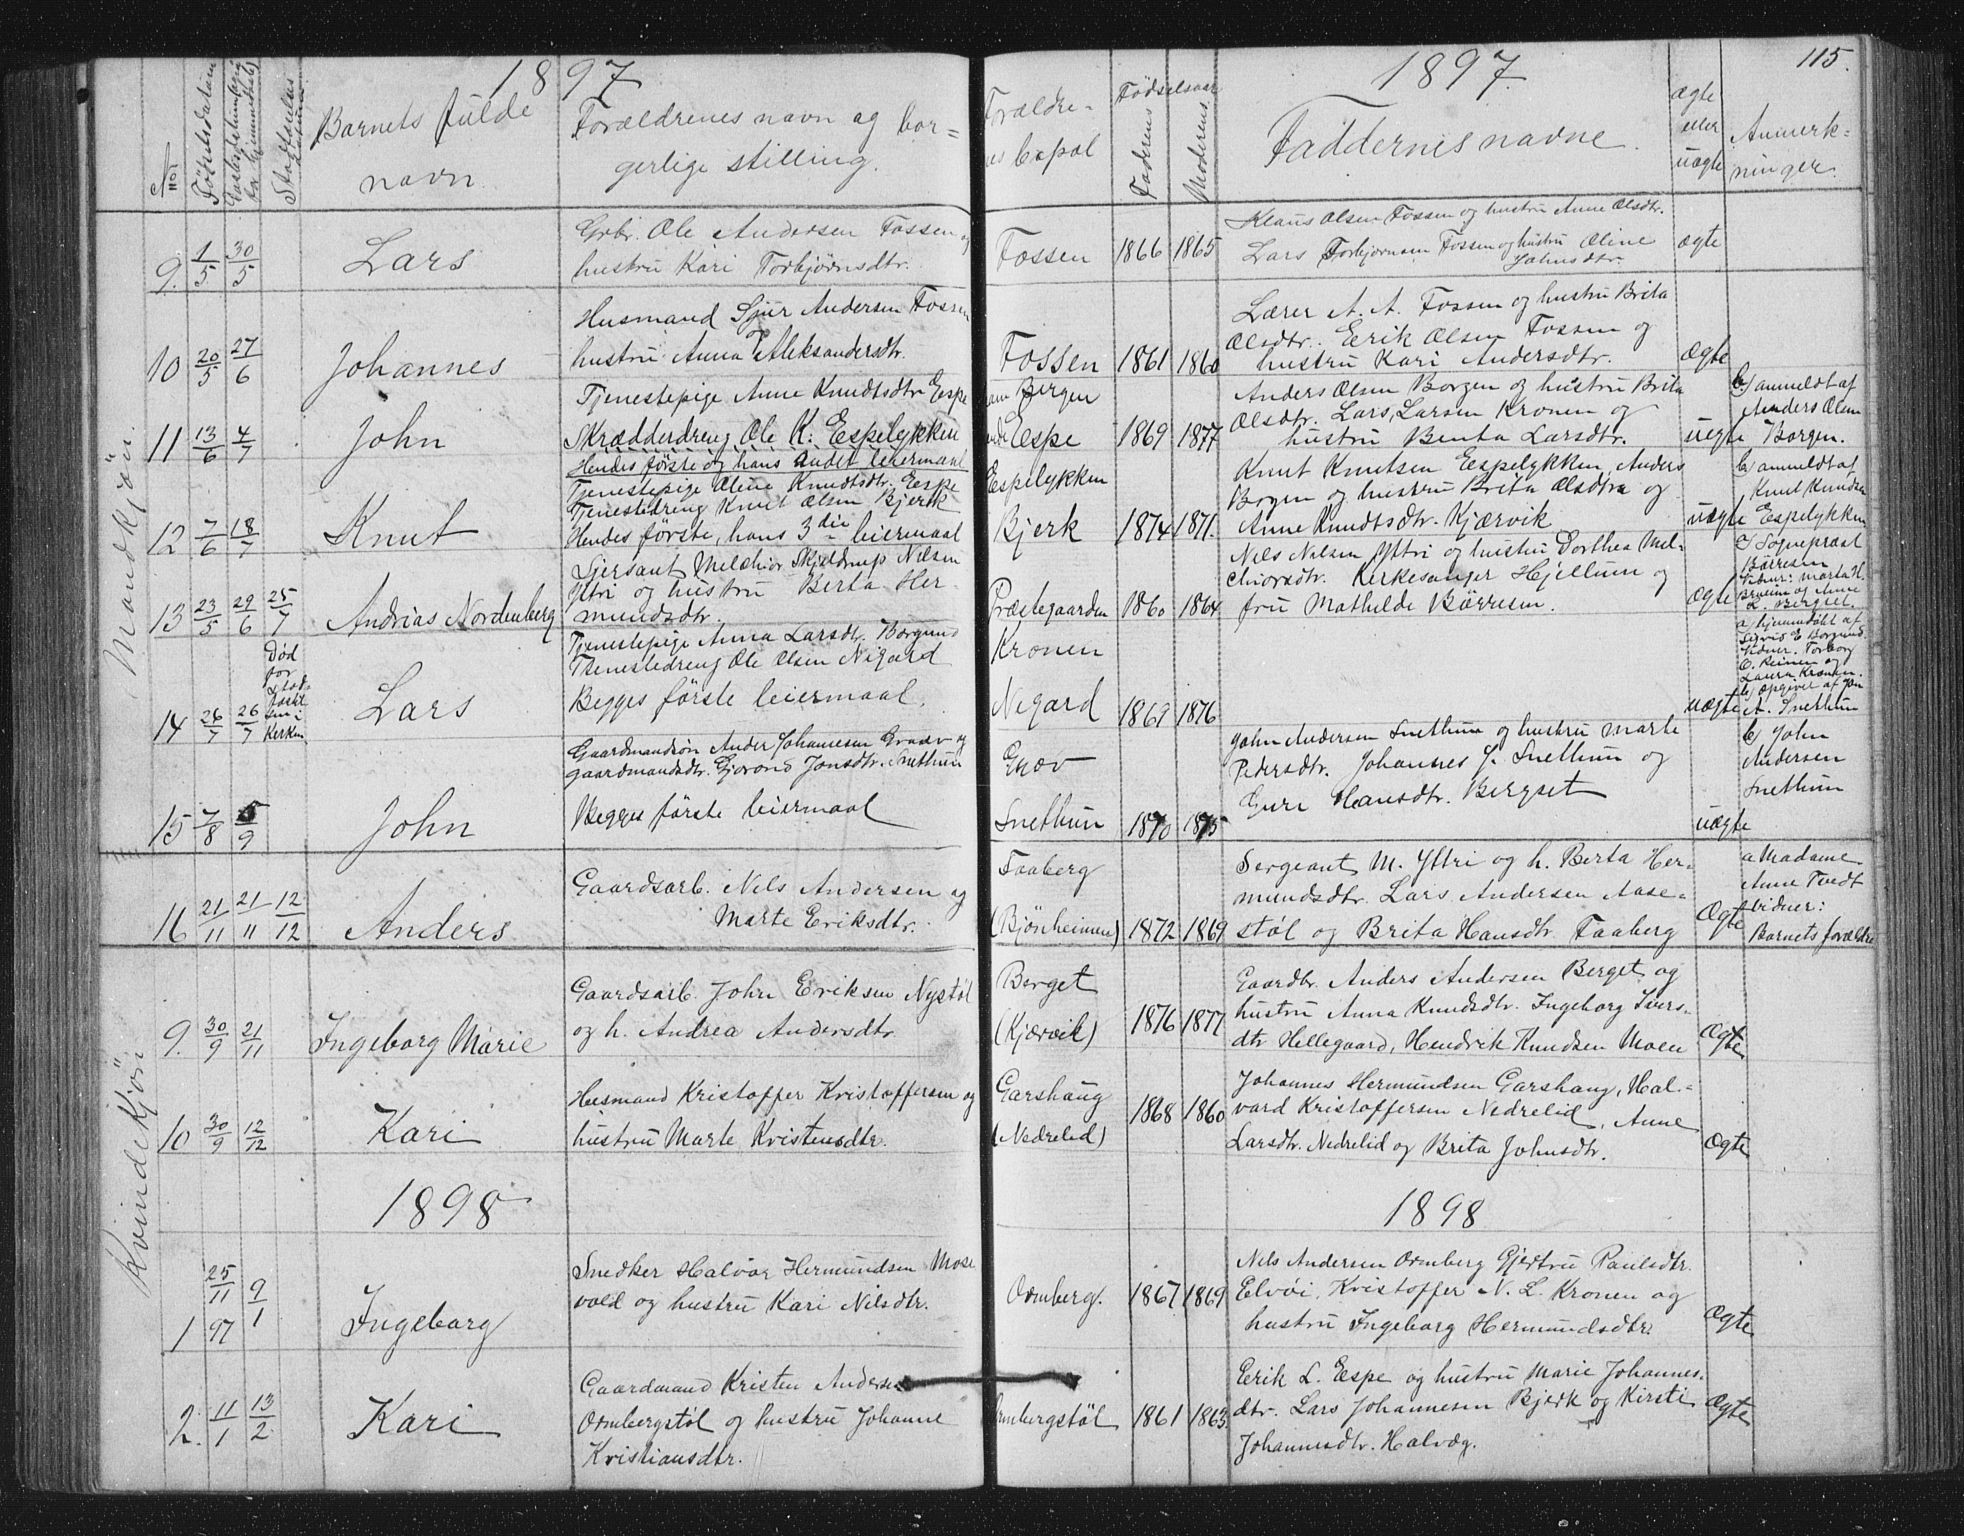 1897
1897.
115.
No
Fødselsdatum
Barnets fulde
navn.
Forældrenes navn og bor=
gerlige stilling.
Forældre-
nes bopæl
Fødselsaar
Faderens
Moderens
Faddernes navne.
ægte
eller
uægte
Anmærk-
ninger.
Mandkjøn.
9. 1/5 30/5 Lars
Grbr. Ole Andersen Fossen og
hustru Kari Torbjørnsdtr.
Fossen 1866 1865
Klaus Olsen Fossen og hustru Anne Olsdtr.
Lars Torbjørnsen Fossen og hustru Oline
Johnsdtr.
ægte
10 20/5 27/6 Johannes
Husmand Sjur Andersen Fossen
hustru Anna Aleksandersdtr.
Fossen 1861 1860
Lærer A. A. Fossen og hustru Brita
Olsdtr. Erik Olsen Fossen og
hustru Kari Andersdtr.
Ægte
11 13/6 4/7 John
Tjenestepige Anne Knudtsdtr Espe
Skrædderdreng Ole K. Espelykken
Hendes første og hans andet leiermaal
Bergen
Espe 1869 1877
Anders Olsen Borgen og hustru Brita
Olsdtr. Lars Larsen Kronen og
hustru Benta Larsdtr.
uegte
b) anmeldt af
Anders Olsen
Borgen.
12 7/6 18/7 Knut
Tjenestepige Oline Knudtsdtr. Espe
Tjenestedreng Knut Olsen Bjerk
Hendes første, hans 3die leiermaal
Espelykken
Bjerk 1874 1871.
Knut Knutsen Espelykken, Anders
Borgen og hustru Brita Olsdtr og
Anne Knudtsdtr. Kjærvik
uægte
b) anmeldt af
Knut Knudsen
Espelykken
13 23/5 29/6 25/7 Andrias Nordenberg
Sjersant Melchior Skjeldrup Nilsen
Yttri og hustru Berta Her-
mundsdtr.
Præstegaarden 1860 1864
Nils Nilsen Yttri og hustru Dorthea Mel-
chiorsdtr. Kirkesanger Hjellum og
fru Mathilde Börresen.
Ægte
Sogneprest
Börresen
Vidner: Marta H.
Bruum og Anne
L. Bergset.
14 26/7 26/7
Død
før
Kirken
Lars
Tjenestepige Anna Larsdtr. Borgund
Tjenestedreng Ole Olsen Nigard
Begges første leiermaal.
Kronen
Nigard 1869 1876
uægte
a) hjemmedøbt af
Sigrid E Borgund.
Vidner. Torborg
O. Reinen og
Laura Kronen.
b) opgivet af John
A. Snethun
15 7/8 5/9 John
Gaardmandsøn Ander Johannesen Grov og
gaardmandsdtr. Gjorond Jonsdtr. Snethun
Begges første leiermaal
Grov
Snethun 1870 1875
John Andersen Snethun og hustru Marte
Pedersdtr. Johannes J. Snethun og
Guri Hansdtr. Bergset
uægte
b) John
Andersen
Snethun
16 21/11 21/11 12/12 Anders
Gaardsarb. Nels Andersen og
Marte Eriksdtr.
Faaberg
(Bjönheimen) 1872 1869
Sergeant M. Yttri og h. Berta Her-
mundsdtr. Lars Andersen Aase-
støl og Brita Hansdtr. Faaberg
Ægte
a Madame
Anne Tvedt
vidner:
Barnets forældre
Kvindekjön
9. 30/9 21/11 Ingeborg Marie
Gaardsarb. John Eriksen Nystøl
og h. Andrea Andersdtr.
Berget
(Kjærvik) 1876 1877
Gaardbr. Anders Andersen Berget og
hustru Anna Knudsdtr. Ingeborg Siurs-
dtr Hillegaard, Hendrik Knudsen Moen
Ægte
10 30/9 12/12 Kari
Husmand Kristoffer Kristoffersen og
hustru Marte Kristensdtr.
Garshaug
(Nedrelid) 1868 1860
Johannes Hermundsen Garshaug, Hal-
vard Kristoffersen Nedrelid, Anne
Larsdtr. Nedrelid og Brita Johnsdtr.
Ægte
1898
1898
1 25/11 97 9/1 Ingeborg
Snedker Halvor Hermundsen Mose
vold og hustru Kari Nilsdtr.
Ormberg. 1867 1869
Nils Andersen Ormberg Gjertru Paulsdtr.
Elvøi, Kristoffer N. L. Kronen og
hustru Ingeborg Hermundsdtr.
Ægte
2. 11/1 13/2 Kari
Gaardmand Kristen Andersen
Ormbergstöl og hustru Johanne
Kristiansdtr.
Ormbergstöl 1861 1863
Erik L. Espe og hustru Marie Johannes-
dtr. Lars Johannesen Bjerk og Kirsti
Johannesdtr. Halvøg.
Ægte